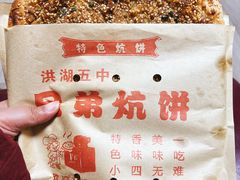 特色炕饼
洪湖五中
兄弟炕饼
特色小
香味四
美味无
一吃难